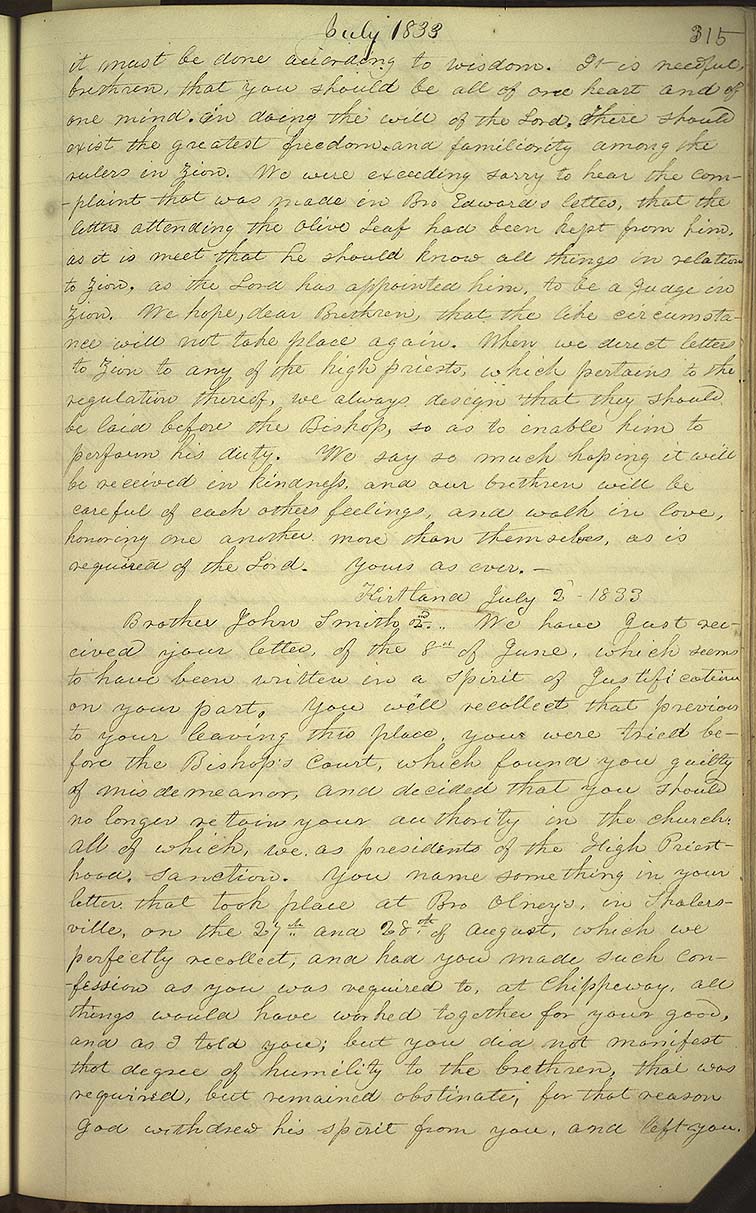 July 1833
315
it must be done according to wisdom. It is needful,
brethren, that you should be all of one heart and of
one mind. in doing the will of the Lord. There should
exist the greatest freedom and familiority among the
rulers in Zion. We were exceeding sorry to hear the com-
-plaint that was made in Bro Edward's letter, that the
letters attending the Olive Leaf had been kept from him,
as it is meet that he should know all things in relation
to Zion, as the Lord has appointed him, to be a Judge in
Zion. We hope, dear Brethren, that the like circumsta-
nce will not take place again. When we direct letters
to Zion to any of the high priests, which pertains to the
regulation thereof, we always design that they should
be laid before the Bishop, so as to enable him to
perform his duty. We say so much hoping it will
be received in kindness, and our brethren will be
careful of each others feelings, and walk in love,
honoring one another more than themselves, as is
required of the Lord. Yours as ever. —
Kirtland July 2d - 1833
Brother John Smith .. We have Just rec-
eived your letter, of the 8th of June, which seems
to have been written in a spirit of Justification
on your part. You will recollect that previous
to your leaving this place, your were tried be-
fore the Bishop's Court, which found you guilty
of misdemeanor, and decided that you should
no longer retain your authority in the church:
all of which, we, as presidents of the High Priest-
hood, sanction. You name something in your
letter that took place at Bro Olney's, in Shalers-
ville, on the 27th and 28th of august, which we
perfectly recollect, and had you made such con-
-fession as you was required to, at Chippeway, all
things would have worked together for your good,
and as I told you; but you did not manifest
that degree of humility to the brethren, that was
required, but remained obstinate; for that reason
God withdrew his spirit from you, and left you.